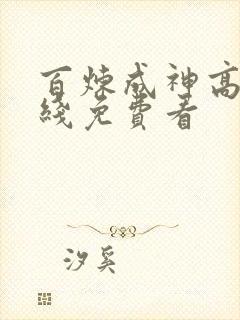 百炼成神高
线免费看
汐奚